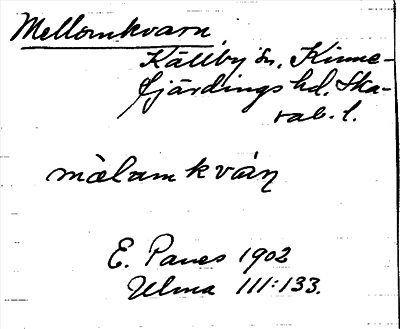 Mellomkvarn,
Källby sn, Kinne-
fjärdings hd, Ska-
rab. l.
mälamkvàrn
E. Panes 1902
Ulma 111:133.